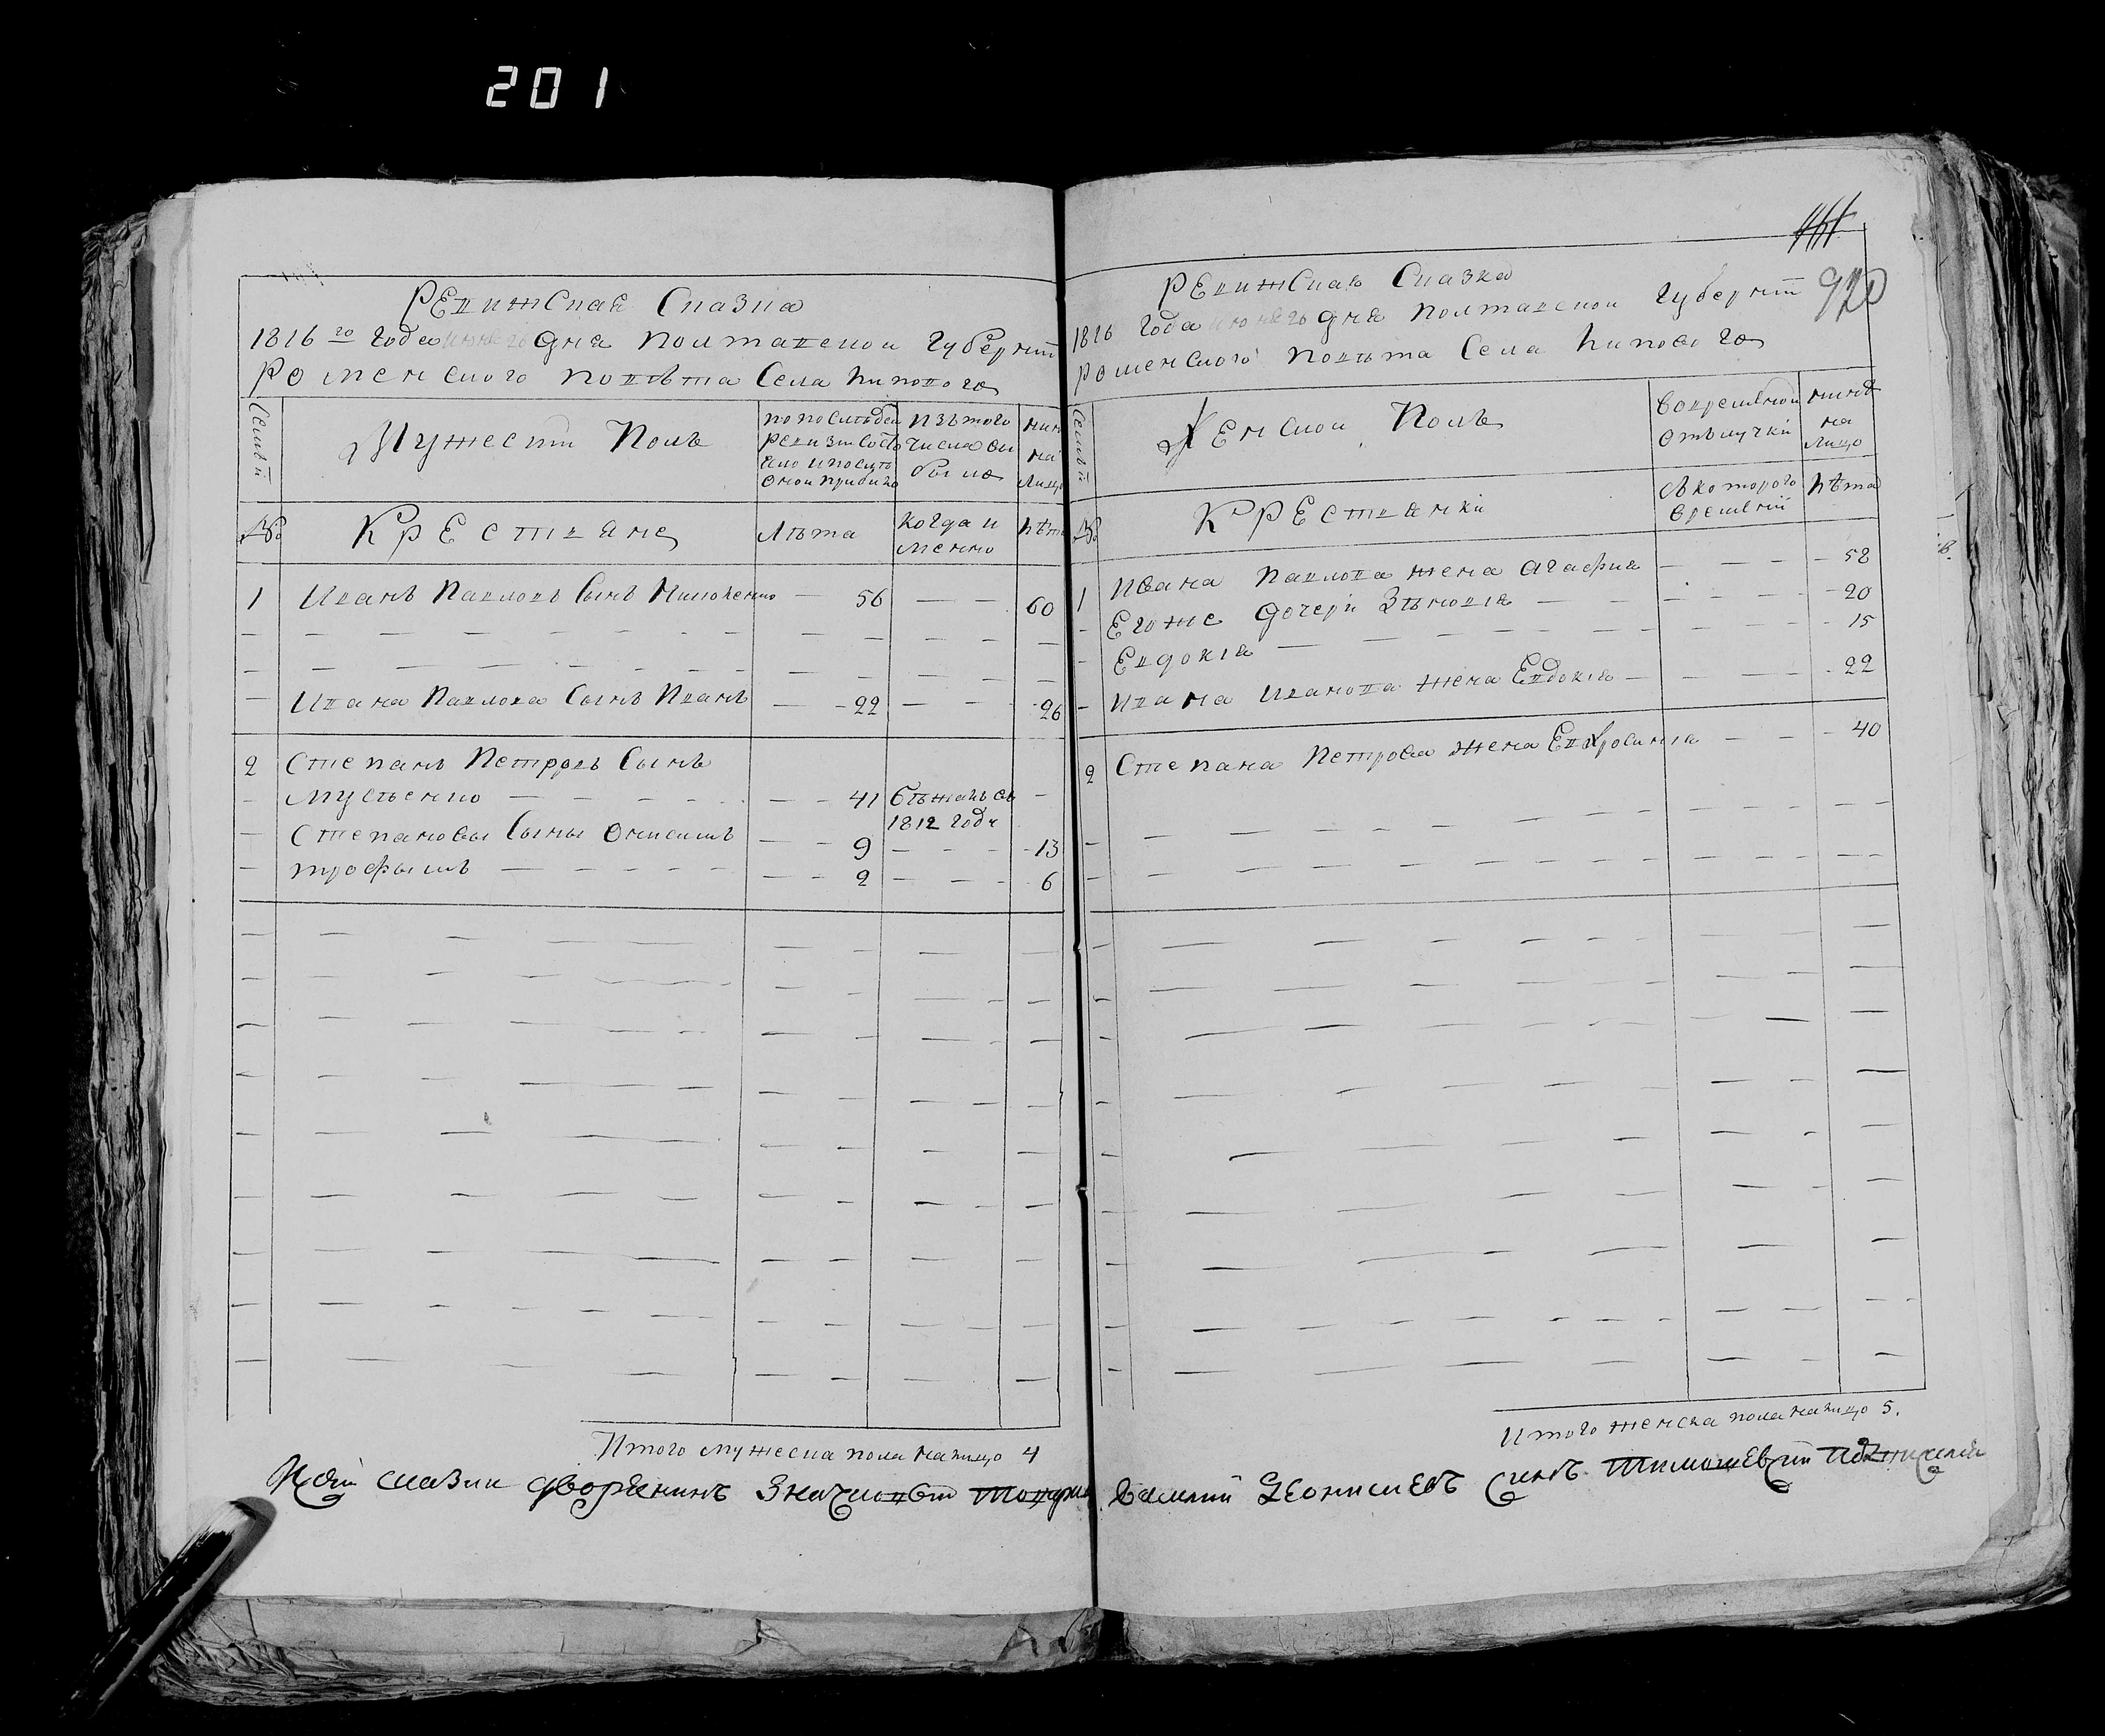 201
Ревижская Сказка
1816 го Года дня Полтавской Губернїи
Роменского Повѣта Села Липового
Семьи
Мужеский Полъ
по последней ревизии состояло и после оной прибыло
Изъ того числа выбыло
ныне на лицо
№
Крестьяне
Лѣта
когда имянно
Лѣта
1 Иванъ Павловъ Сынъ — 56 — — 60
Ивана Павлова Сынъ Иванъ — 22 — — 26
2 Степанъ Петровъ Сынъ
Мусѣенко — 41 бѣжалъ въ
1812 годе
Степановы Сыны Онисимъ — 9 — 13
Трофымъ — 2 — 6
Итого мужеска пола налицо 4
К сей сказки дворянинъ
920
Ревижская Сказка
1816 Года дня Полтавской Губернїи
Роменского Повѣта Села Липового
Семьи
Женской Полъ
Во временной отлучки
ныне на лицо
№
Крестьянки
Съ которого времений
Лѣта
1 Ивана Павлова жена Агафия — — — 58
Егоже дочери Зѣновия — — 20
Евдокия — — 15
Ивана Иванова жена Евдокия — — 22
2 Степана Петрова жена Евфросиния — — 40
Итого женска пола налицо 5.
Василий Деонисиевъ Синъ